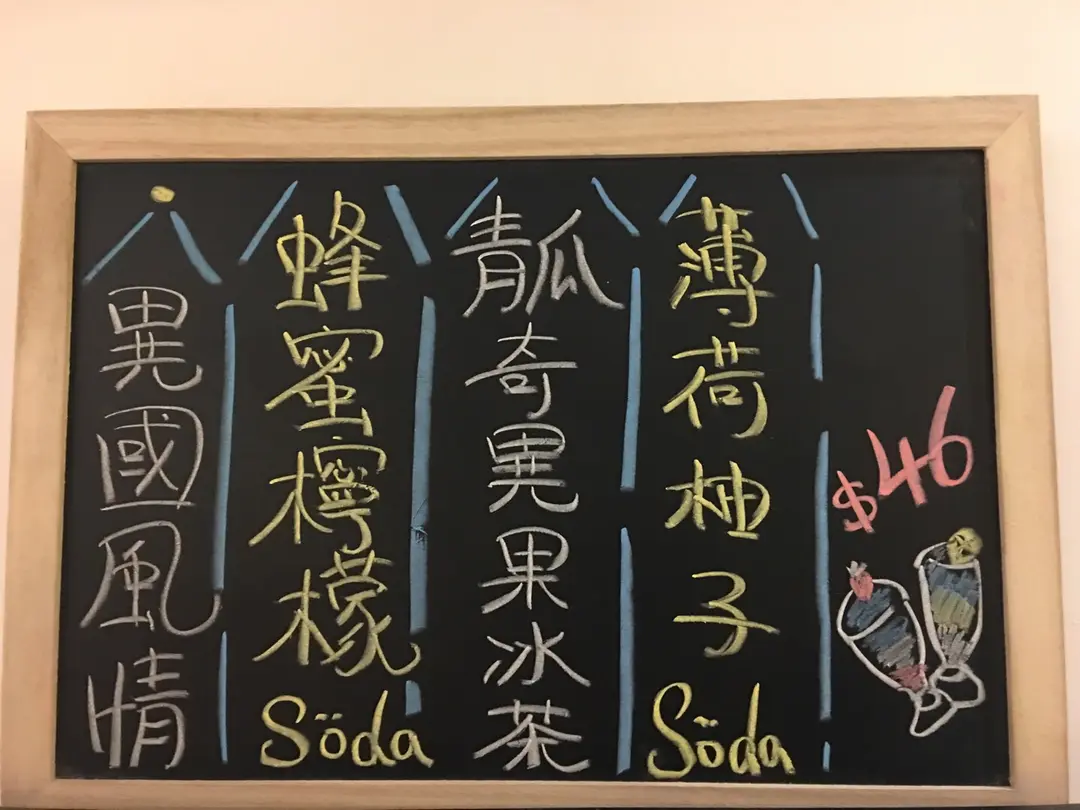 異國風情
蜂蜜檸檬Söda
青瓜奇異果冰茶
薄荷柚子Söda
$46